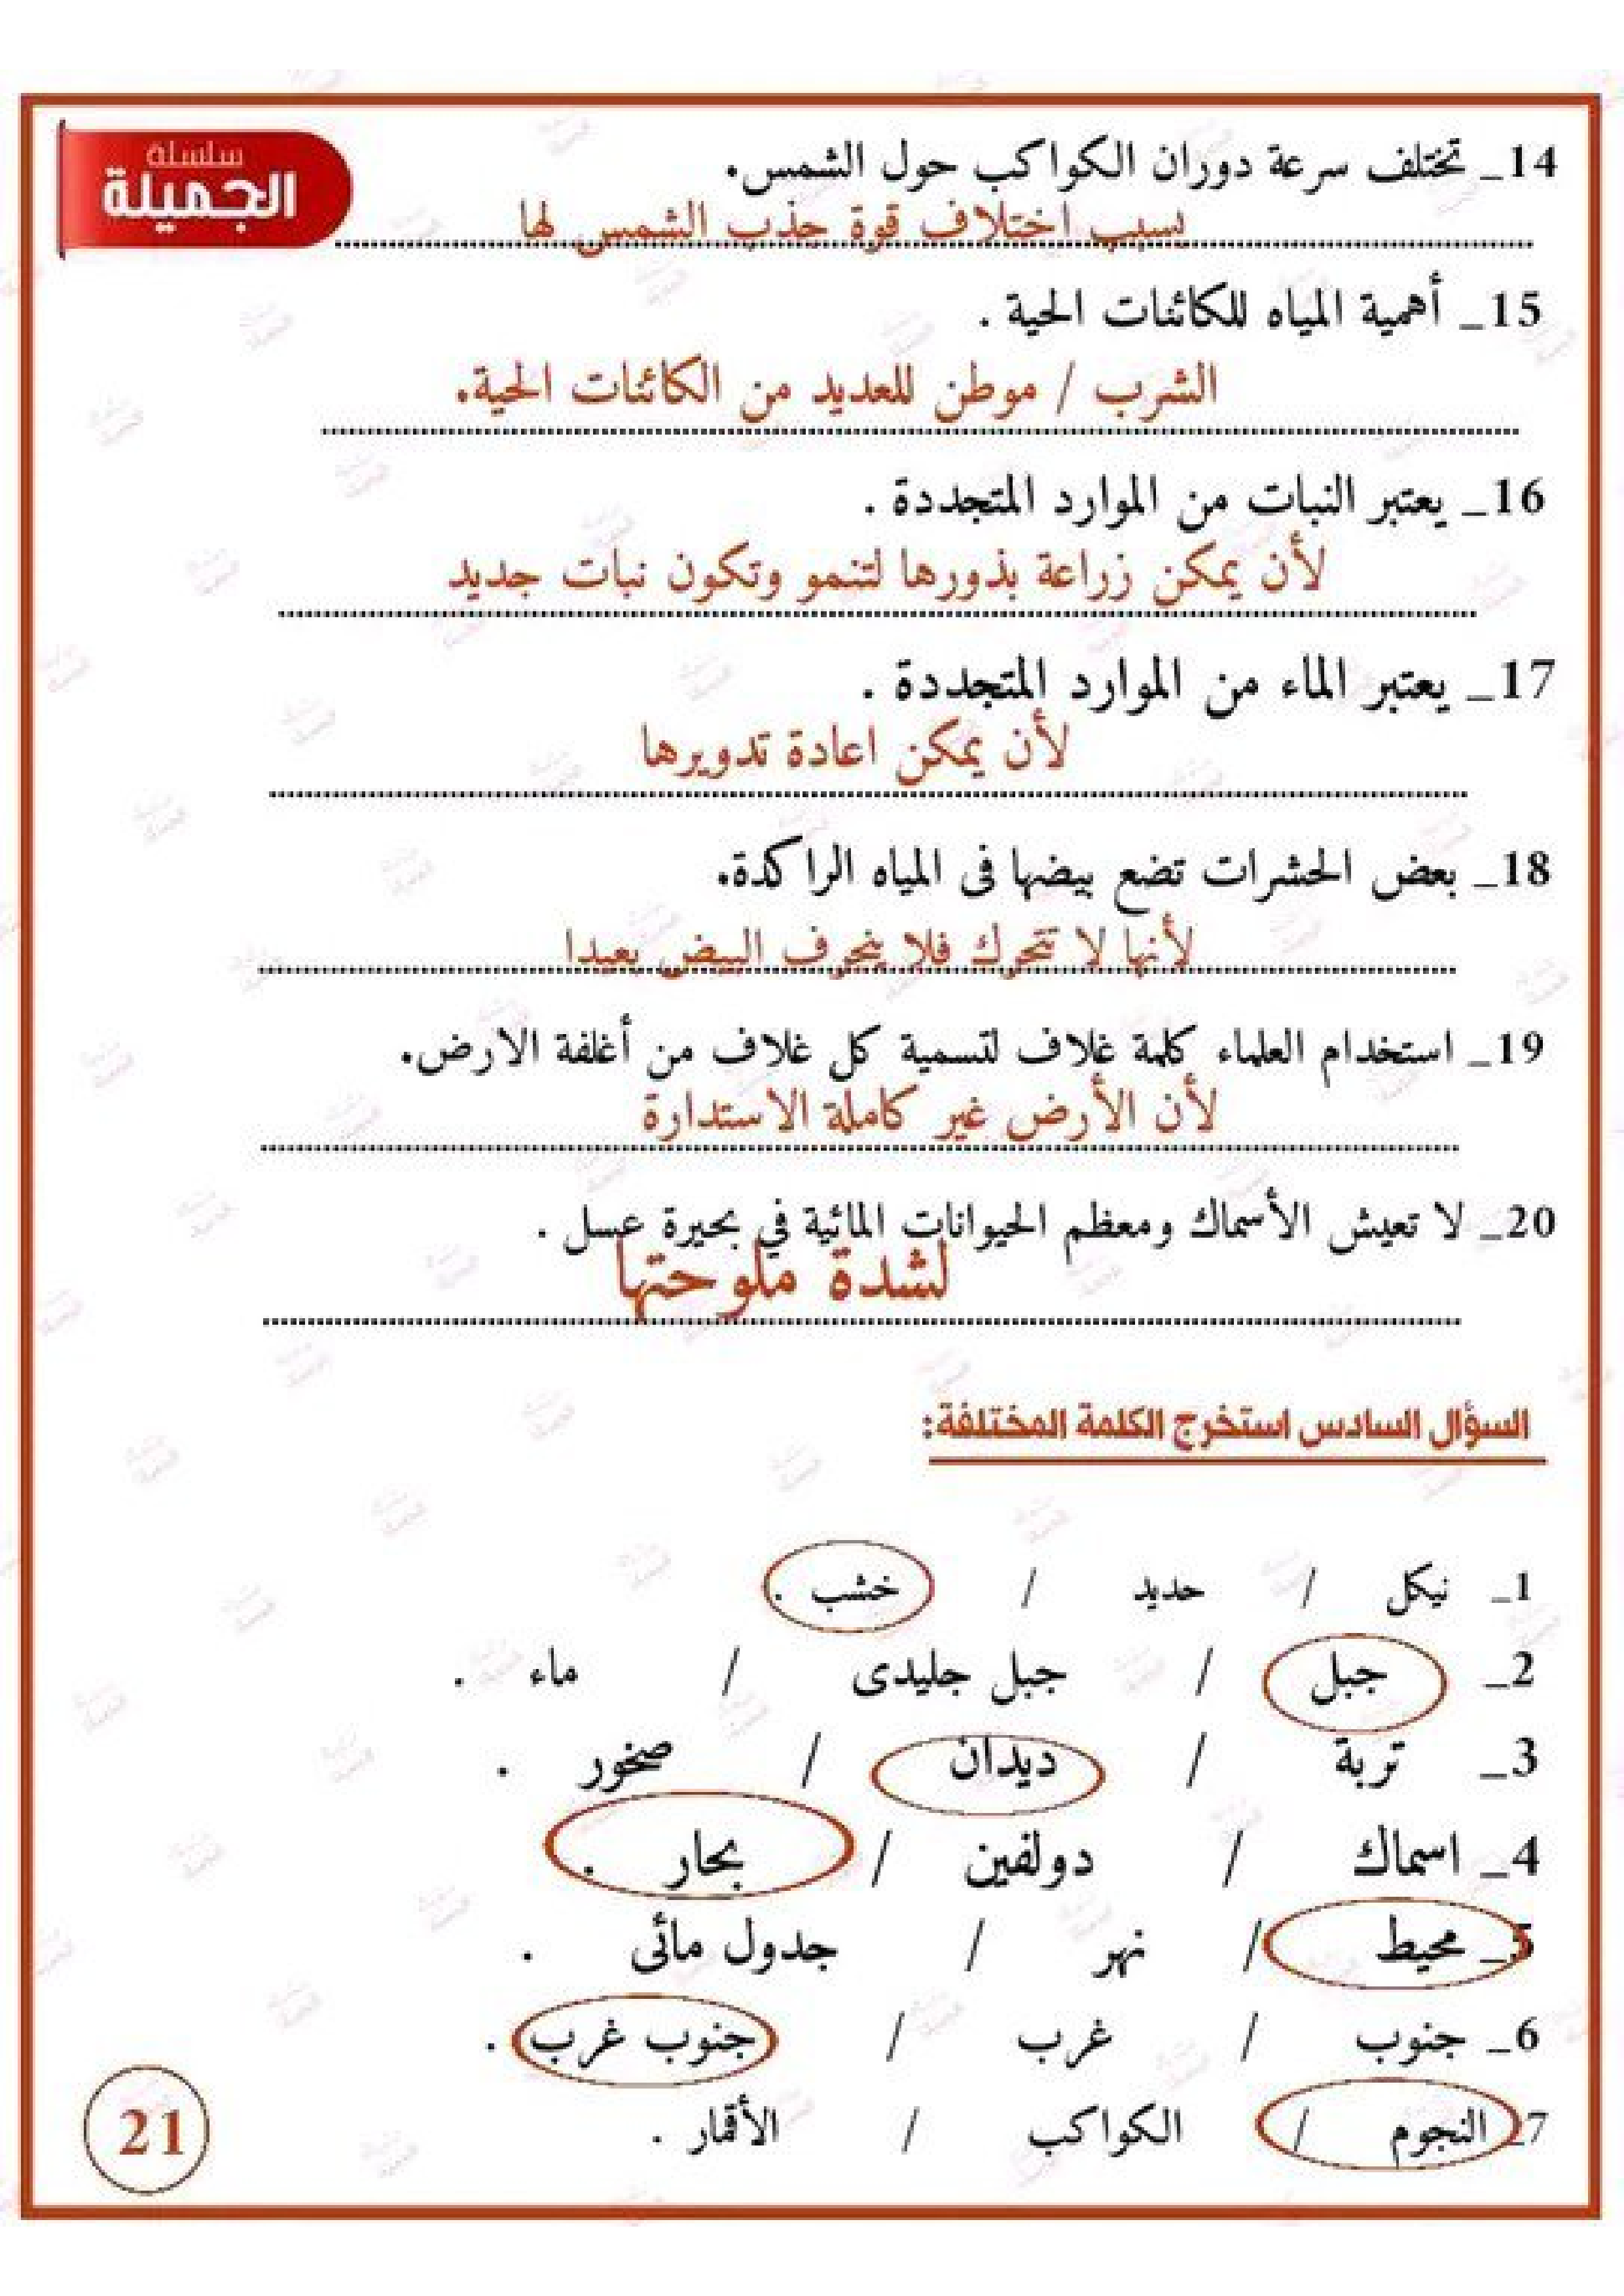 سلسلة
الجميلة
14_ تختلف سرعة دوران الكواكب حول الشمس.
بسبب اختلاف قوة جذب الشمس لها
15_ أهمية المياه للكائنات الحية .
الشرب / موطن للعديد من الكائنات الحية.
16_ يعتبر النبات من الموارد المتجددة .
لأن يمكن زراعة بذورها لتنمو وتكون نبات جديد
17_ يعتبر الماء من الموارد المتجددة .
لأن يمكن اعادة تدويرها
18_ بعض الحشرات تضع بيضها فى المياه الراكدة.
لأنها لا تتحرك فلا ينجرف البيض بعيدا
19_ استخدام العلماء كلمة غلاف لتسمية كل غلاف من أغلفة الارض.
لأن الأرض غير كاملة الاستدارة
20_ لا تعيش الأسماك ومعظم الحيوانات المائية في بحيرة عسل .
لشدة ملوحتها
السؤال السادس استخرج الكلمة المختلفة:
1_ نيكل / حديد / خشب .
2_ جبل / جبل جليدى / ماء .
3_ تربة / ديدان / صخور .
4_ اسماك / دولفين / بحار .
5_ محيط / نهر / جدول مائى .
6_ جنوب / غرب / جنوب غرب .
7_ النجوم / الكواكب / الأقمار .
21